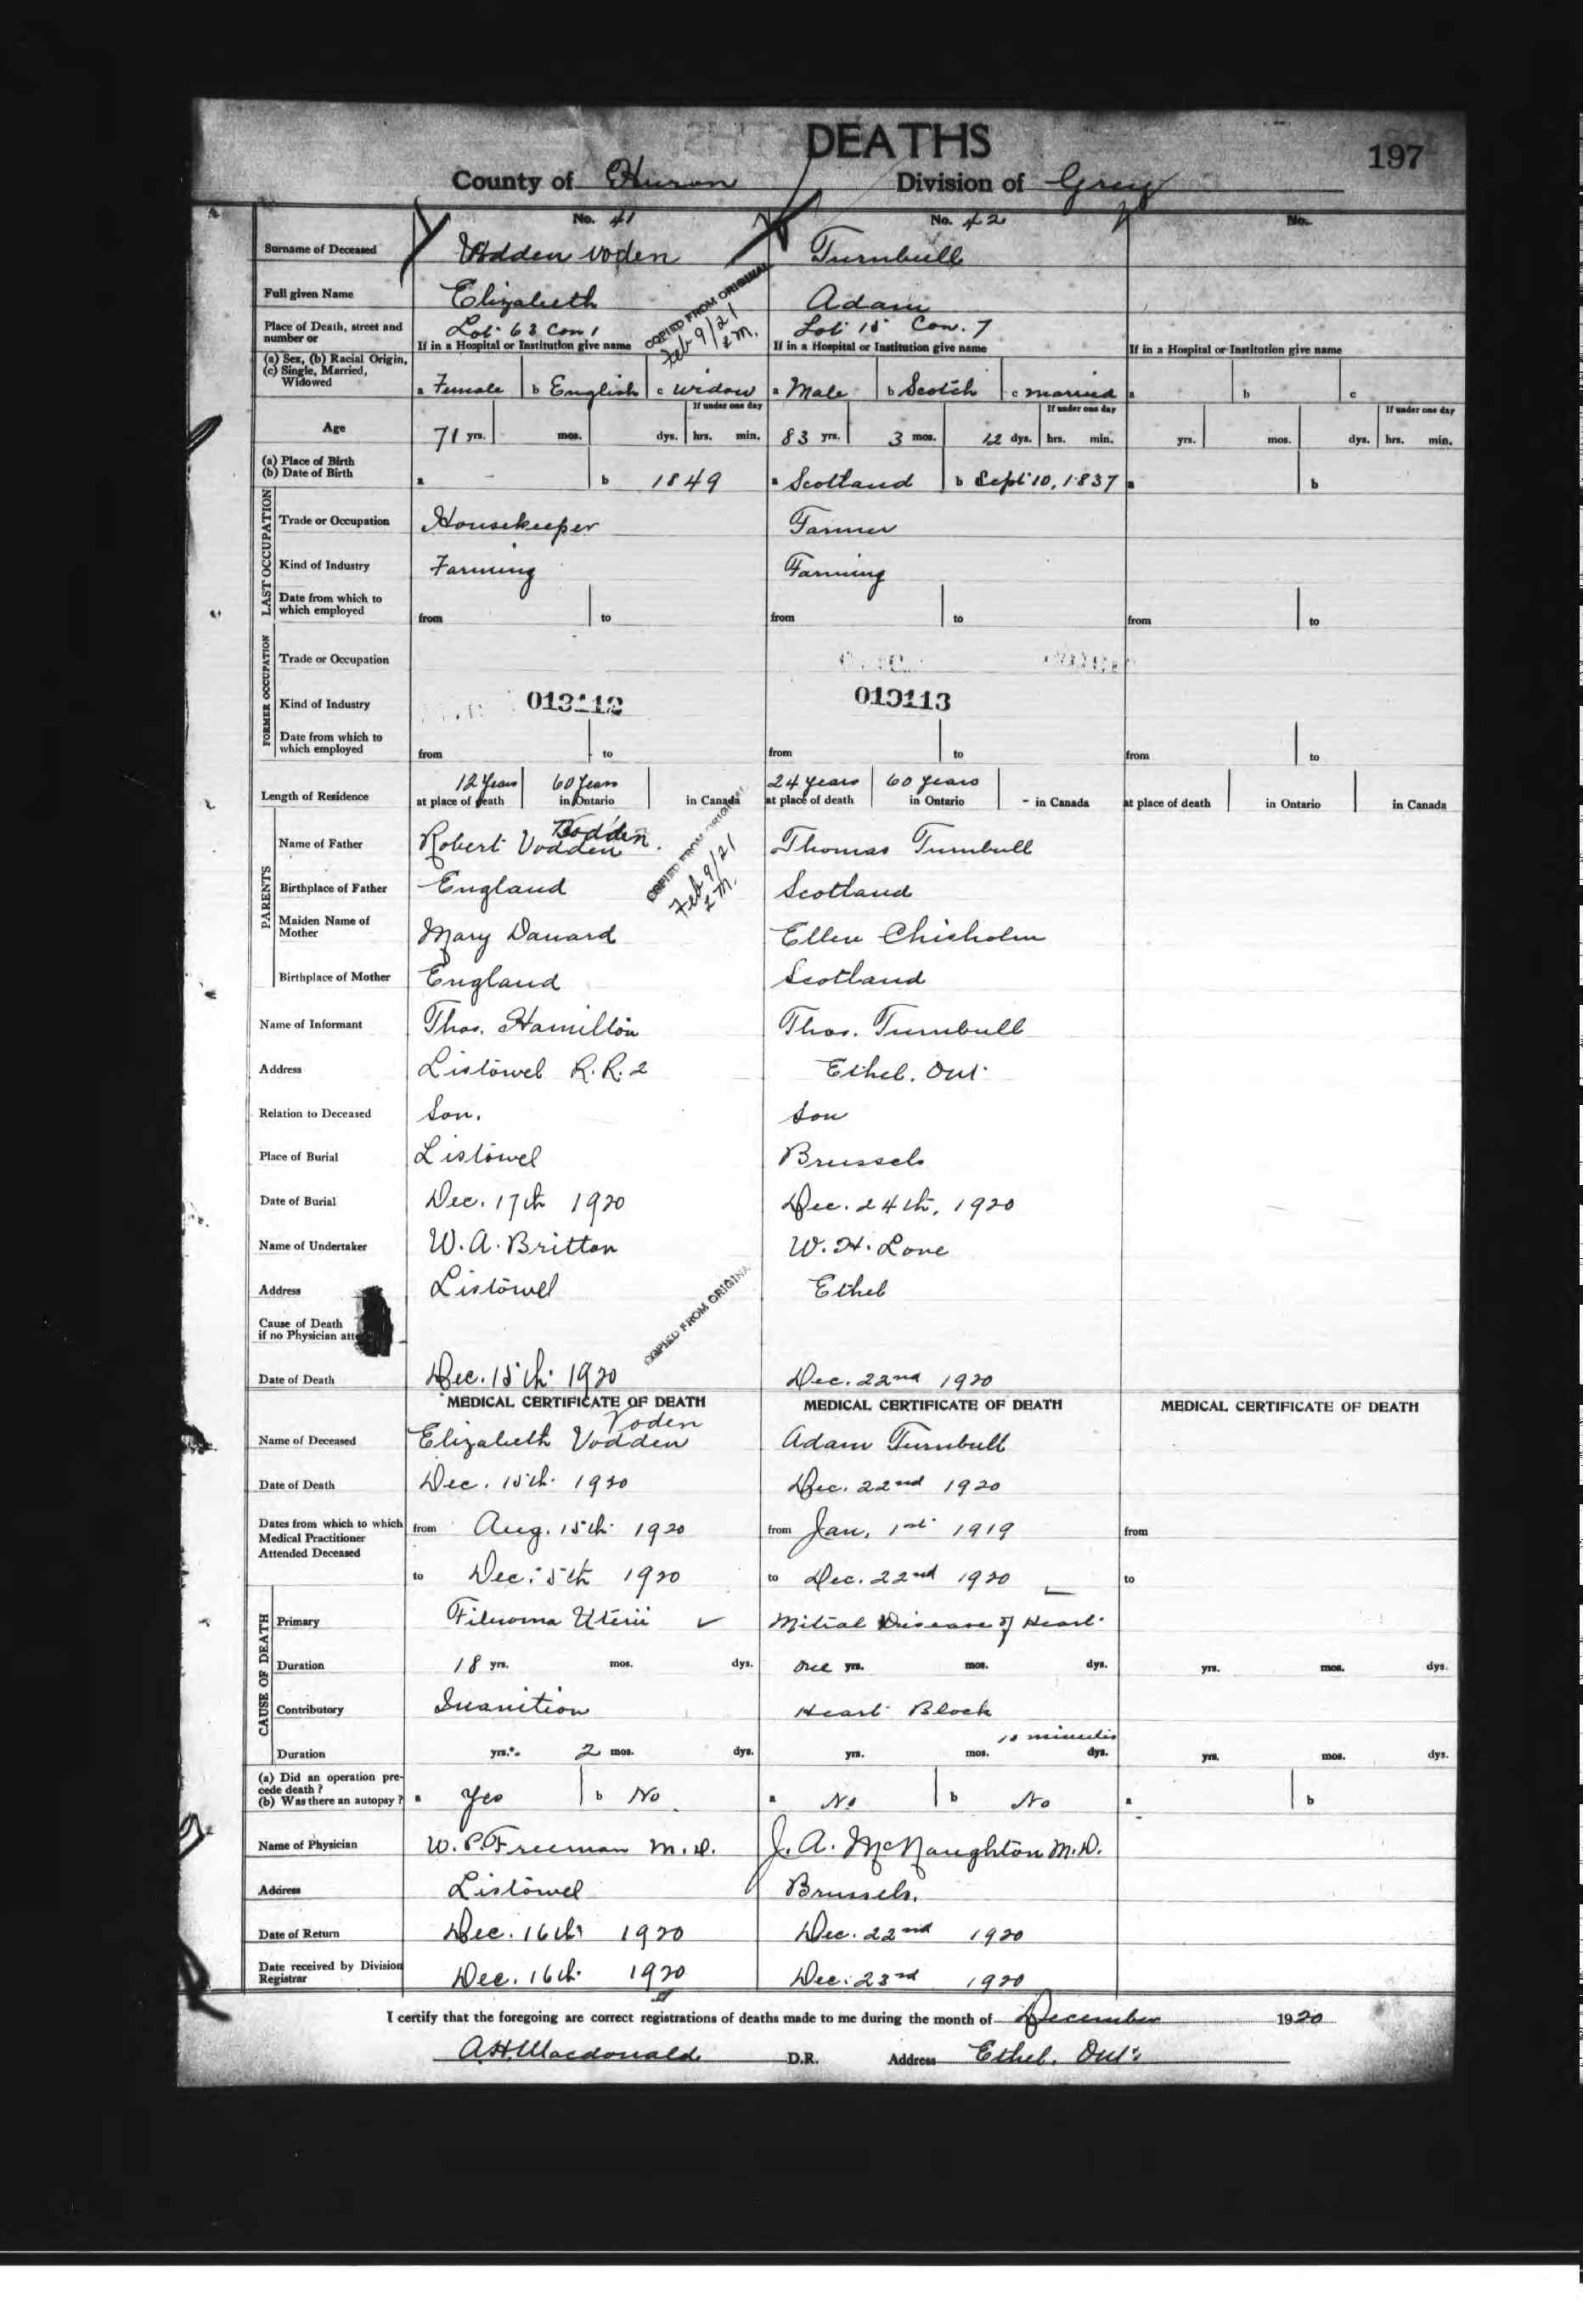 DEATHS
197
County of Huron Division of Grey
No. 41 No. 42 No.
Surname of Deceased Vodden Voden Turnbull
Full given Name Elizabeth Adam
COPIED FROM ORIGINAL
Feb 9/21
Place of Death, street and number or Lot 63 Con 1 Lot 15 Con. 7
If in a Hospital or Institution give name If in a Hospital or Institution give name If in a Hospital or Institution give name
(a) Sex, (b) Racial Origin, (c) Single, Married, Widowed a Female b English c Widow a Male b Scotch c married a b c
If under one day If under one day If under one day
Age 71 yrs. mos. dys. hrs. min. 83 yrs. 3 mos. 12 dys. hrs. min. yrs. mos. dys. hrs. min.
(a) Place of Birth
(b) Date of Birth a - b 1849 a Scotland b Sept 10, 1837 a b
LAST OCCUPATION
Trade or Occupation Housekeeper Farmer
Kind of Industry Farming Farming
Date from which to which employed from to from to from to
FORMER OCCUPATION
Trade or Occupation
Kind of Industry 013112 013113
Date from which to which employed from to from to from to
12 Years 60 Years 24 years 60 years
Length of Residence at place of death in Ontario in Canada at place of death in Ontario - in Canada at place of death in Ontario in Canada
PARENTS
Name of Father Robert Vodden Thomas Turnbull
COPIED FROM ORIGINAL
Feb 9/21
Birthplace of Father England Scotland
Maiden Name of Mother Mary Daward Ellen Chisholm
Birthplace of Mother England Scotland
Name of Informant Thos. Hamilton Thos. Turnbull
Address Listowel R.R. 2 Ethel. Ont.
Relation to Deceased Son. Son
Place of Burial Listowel Brussels
Date of Burial Dec. 17th 1920 Dec. 24th, 1920
Name of Undertaker W. A. Britton W. H. Love
Address Listowel Ethel
COPIED FROM ORIGINA
Cause of Death if no Physician att
Date of Death Dec. 15th 1920 Dec. 22nd 1920
MEDICAL CERTIFICATE OF DEATH MEDICAL CERTIFICATE OF DEATH MEDICAL CERTIFICATE OF DEATH
Voden
Name of Deceased Elizabeth Vodden Adam Turnbull
Date of Death Dec. 15th 1920 Dec. 22nd 1920
Dates from which to which Medical Practitioner Attended Deceased from Aug. 15th 1920 from Jan, 1st 1919 from
to Dec. 15th 1920 to Dec. 22nd 1920 to
CAUSE OF DEATH
Primary Fibroma Uterii Mitral Disease of Heart
Duration 18 yrs. mos. dys. One yrs. mos. dys. yrs. mos. dys.
Contributory Inanition Heart Block
10 minutes
Duration yrs. 2 mos. dys. yrs. mos. dys. yrs. mos. dys.
(a) Did an operation precede death?
(b) Was there an autopsy? a Yes b No a No b No a b
Name of Physician W. P. Freeman M.D. J. A. McNaughton M.D.
Address Listowel Brussels.
Date of Return Dec. 16th 1920 Dec. 22nd 1920
Date received by Division Registrar Dec. 16th 1920 Dec. 23rd 1920
I certify that the foregoing are correct registrations of deaths made to me during the month of December 1920
A.H. Macdonald D.R. Address Ethel. Ont.